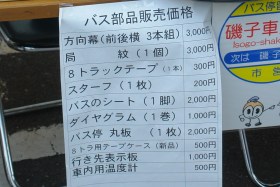 バス部品販売価格
方向幕(前後横 3本組) 3,000円
局 紋(1個) 3,000円
8トラックテープ(1本) 300円
スターフ(1枚) 200円
バスのシート(1脚) 2,000円
ダイヤグラム(1巻) 1,000円
バス停 丸板 (1枚) 2,000円
8トラ用テープケース(新品) 500円
行き先表示板 1,000円
車内用温度計 500円
バス停
磯子車
Isogo-shak
次は 磯子
市営